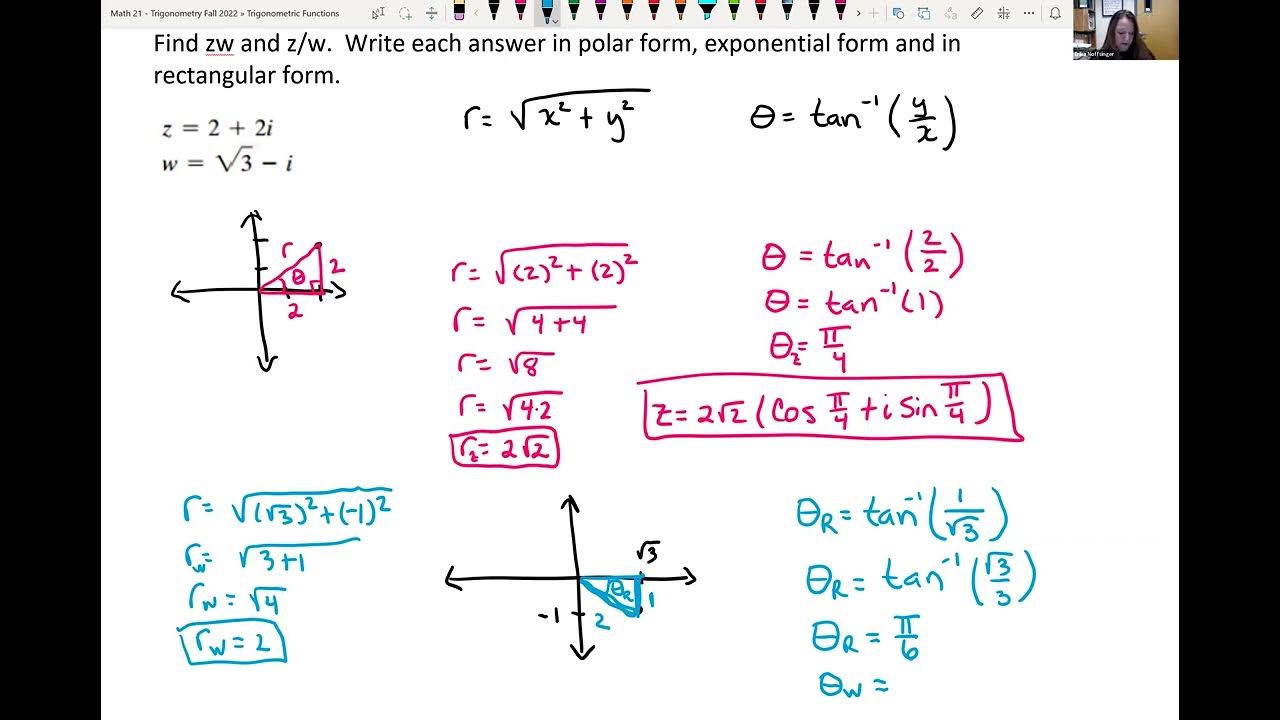 Math 21 - Trigonometry Fall 2022 » Trigonometric Functions
Erika Noffsinger
Find zw and z/w. Write each answer in polar form, exponential form and in
rectangular form.
z = 2 + 2i
w = √3 − i
r = √(x² + y²)
θ = tan⁻¹(y/x)
r
θ
2
2
r = √((2)² + (2)²)
r = √(4+4)
r = √8
r = √(4·2)
r_z = 2√2
θ = tan⁻¹(2/2)
θ = tan⁻¹(1)
θ_z = π/4
z = 2√2 (cos π/4 + i sin π/4)
r = √((√3)² + (-1)²)
r_w = √(3+1)
r_w = √4
r_w = 2
√3
θ_R
1
-1
2
θ_R = tan⁻¹(1/√3)
θ_R = tan⁻¹(√3/3)
θ_R = π/6
θ_w =